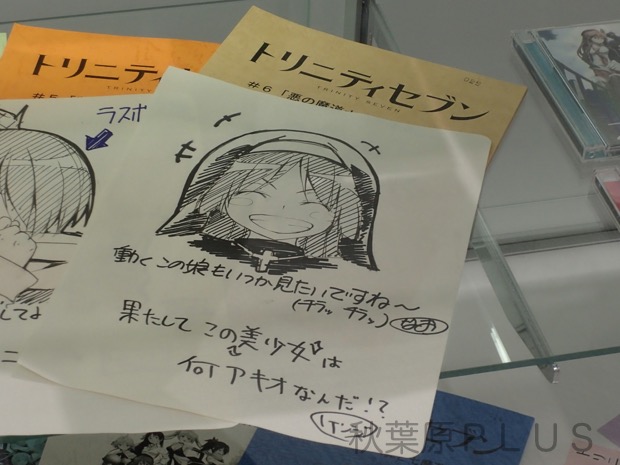 トリニティ
TRINITY
#5「
ひよた
トリニティセブン
TRINITY SEVEN
#6「悪の魔道
ラスボ
働くこの娘もいつか見たいですね～
(チラッ チラッ)
果たして この美少女は
何アキオなんだ!?
してよ
ニ
秋葉原PLUS